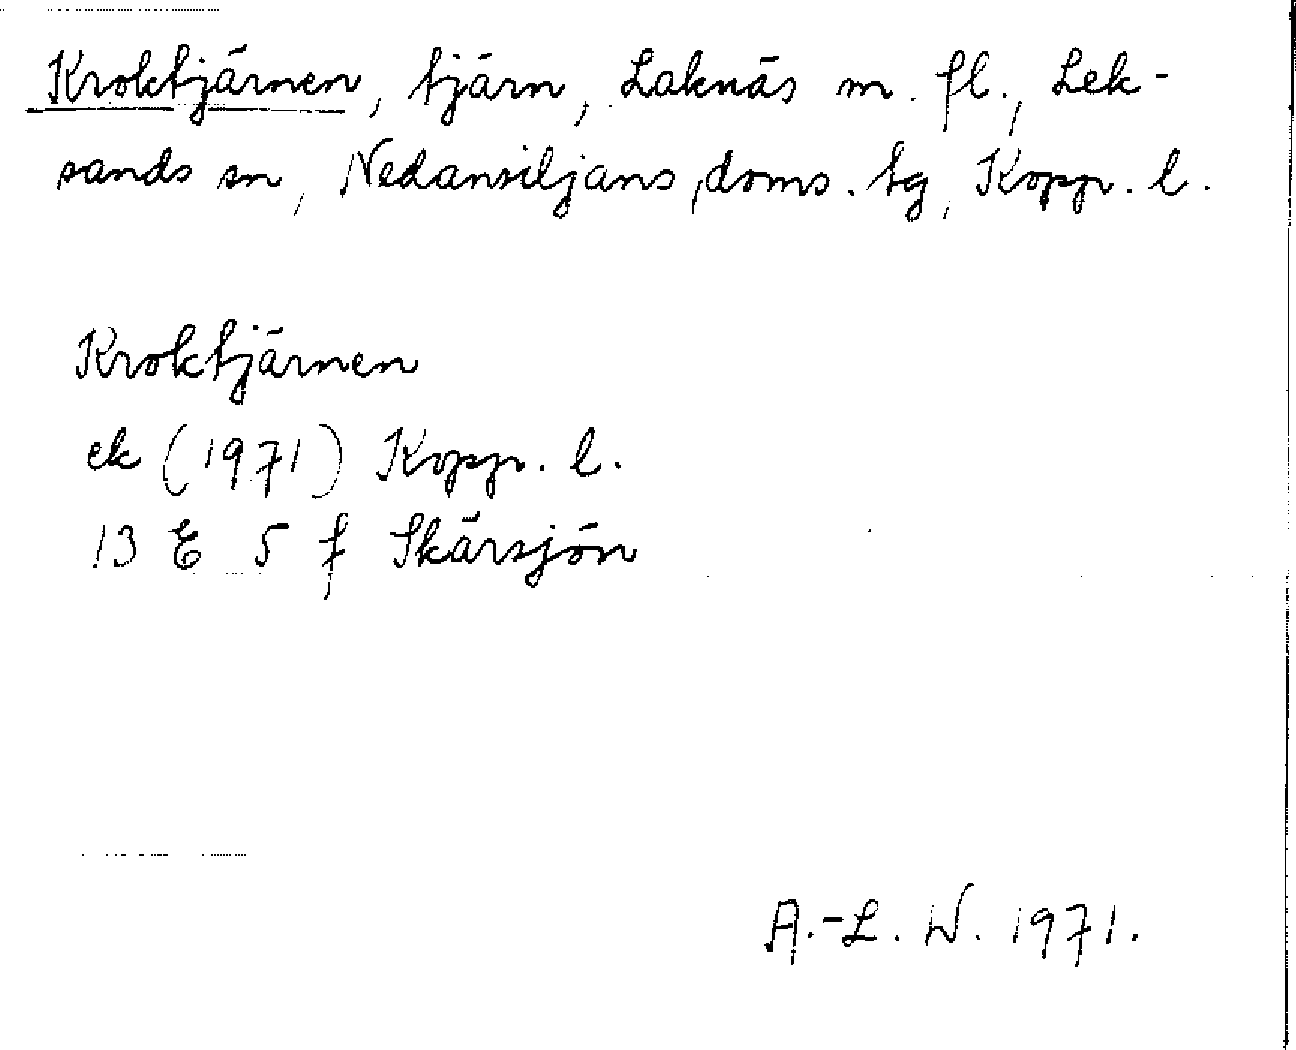 Kroktjärnen, tjärn, Laknäs m. fl., Lek-
sands sn, Nedansiljans doms. tg, Kopp. l.
Kroktjärnen
ek (1971) Kopp. l.
13 E 5 f Skärsjön
A.-L. W. 1971.